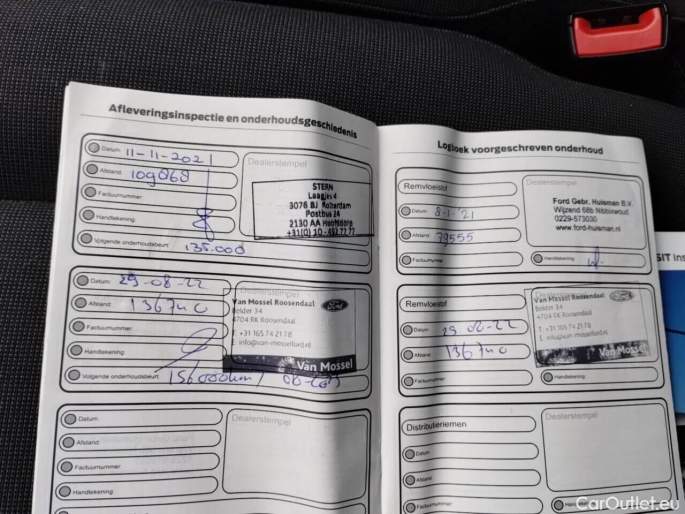 Afleveringsinspectie en onderhoudsgeschiedenis
Datum 11-11-2021
Afstand 109868
Factuurnummer
Handtekening
Volgende onderhoudsbeurt 135.000
Dealerstempel
STERN
Laagjes 4
3076 BJ Rotterdam
Postbus 24
2130 AA Hoofddorp
Datum 29-08-22
Afstand 136740
Factuurnummer
Handtekening
Volgende onderhoudsbeurt
Van Mossel Roosendaal
Ford
Belder 34
4704 RK Roosendaal
T. +31 165 74 21 78
E. info@van-mosselford.nl
Van Mossel
Datum
Afstand
Factuurnummer
Handtekening
Dealerstempel
Logboek voorgeschreven onderhoud
Remvloeistof
Datum
Afstand
Factuurnummer
Dealerstempel
Ford Gebr. Huisman B.V.
Wijzend 68b Nibbixwoud
0229-573030
www.ford-huisman.nl
Handtekening
Remvloeistof
Datum 29 08-22
Afstand 136740
Factuurnummer
Van Mossel Roosendaal
Belder 34
4704 RK Roosendaal
T. +31 165 74 21 78
E. info@van-mosselford.nl
Van Mossel
Handtekening
Distributieriemen
Datum
Afstand
Factuurnummer
Dealerstempel
SIT
CarOutlet.eu